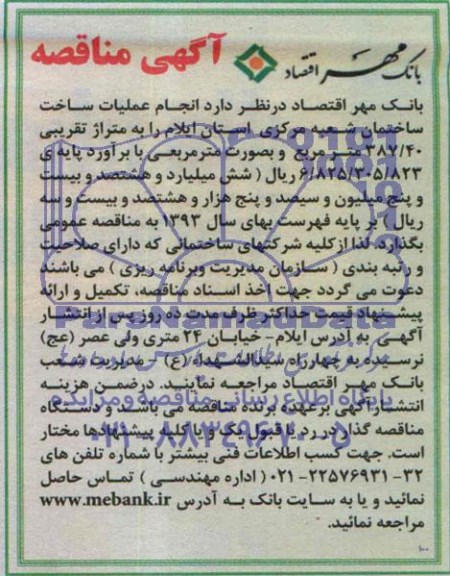 بانک مهر اقتصاد
آگهی مناقصه
بانک مهر اقتصاد درنظر دارد انجام عملیات ساخت
ساختمان شعبه مرکزی استان ایلام را به متراژ تقریبی
۳۸۷/۴۰ متر مربع و بصورت مترمربعی با برآورد پایه ی
۶/۸۲۵/۳۰۵/۸۲۳ ریال ( شش میلیارد و هشتصد و بیست
و پنج میلیون و سیصد و پنج هزار و هشتصد و بیست و سه
ریال ) بر پایه فهرست بهای سال ۱۳۹۳ به مناقصه عمومی
بگذارد. لذا از کلیه شرکتهای ساختمانی که دارای صلاحیت
و رتبه بندی ( سازمان مدیریت وبرنامه ریزی ) می باشند
دعوت می گردد جهت اخذ اسناد مناقصه، تکمیل و ارائه
پیشنهاد قیمت حداکثر ظرف مدت ده روز پس از انتشار
آگهی به آدرس ایلام- خیابان ۲۴ متری ولی عصر (عج)
نرسیده به چهارراه سیدالشهداء (ع) - مدیریت شعب
بانک مهر اقتصاد مراجعه نمایند. درضمن هزینه
انتشار آگهی برعهده برنده مناقصه می باشد و دستگاه
مناقصه گذار در رد یا قبول یک و یا کلیه پیشنهادها مختار
است. جهت کسب اطلاعات فنی بیشتر با شماره تلفن های
۳۲-۲۲۵۷۶۹۳۱-۰۲۱ ( اداره مهندسی ) تماس حاصل
نمائید و یا به سایت بانک به آدرس www.mebank.ir
مراجعه نمائید.
۱۰۰
ParsNamadData
پایگاه اطلاع رسانی مناقصه و مزایده
۰۲۱-۸۸۳۴۹۶۷۰-۵